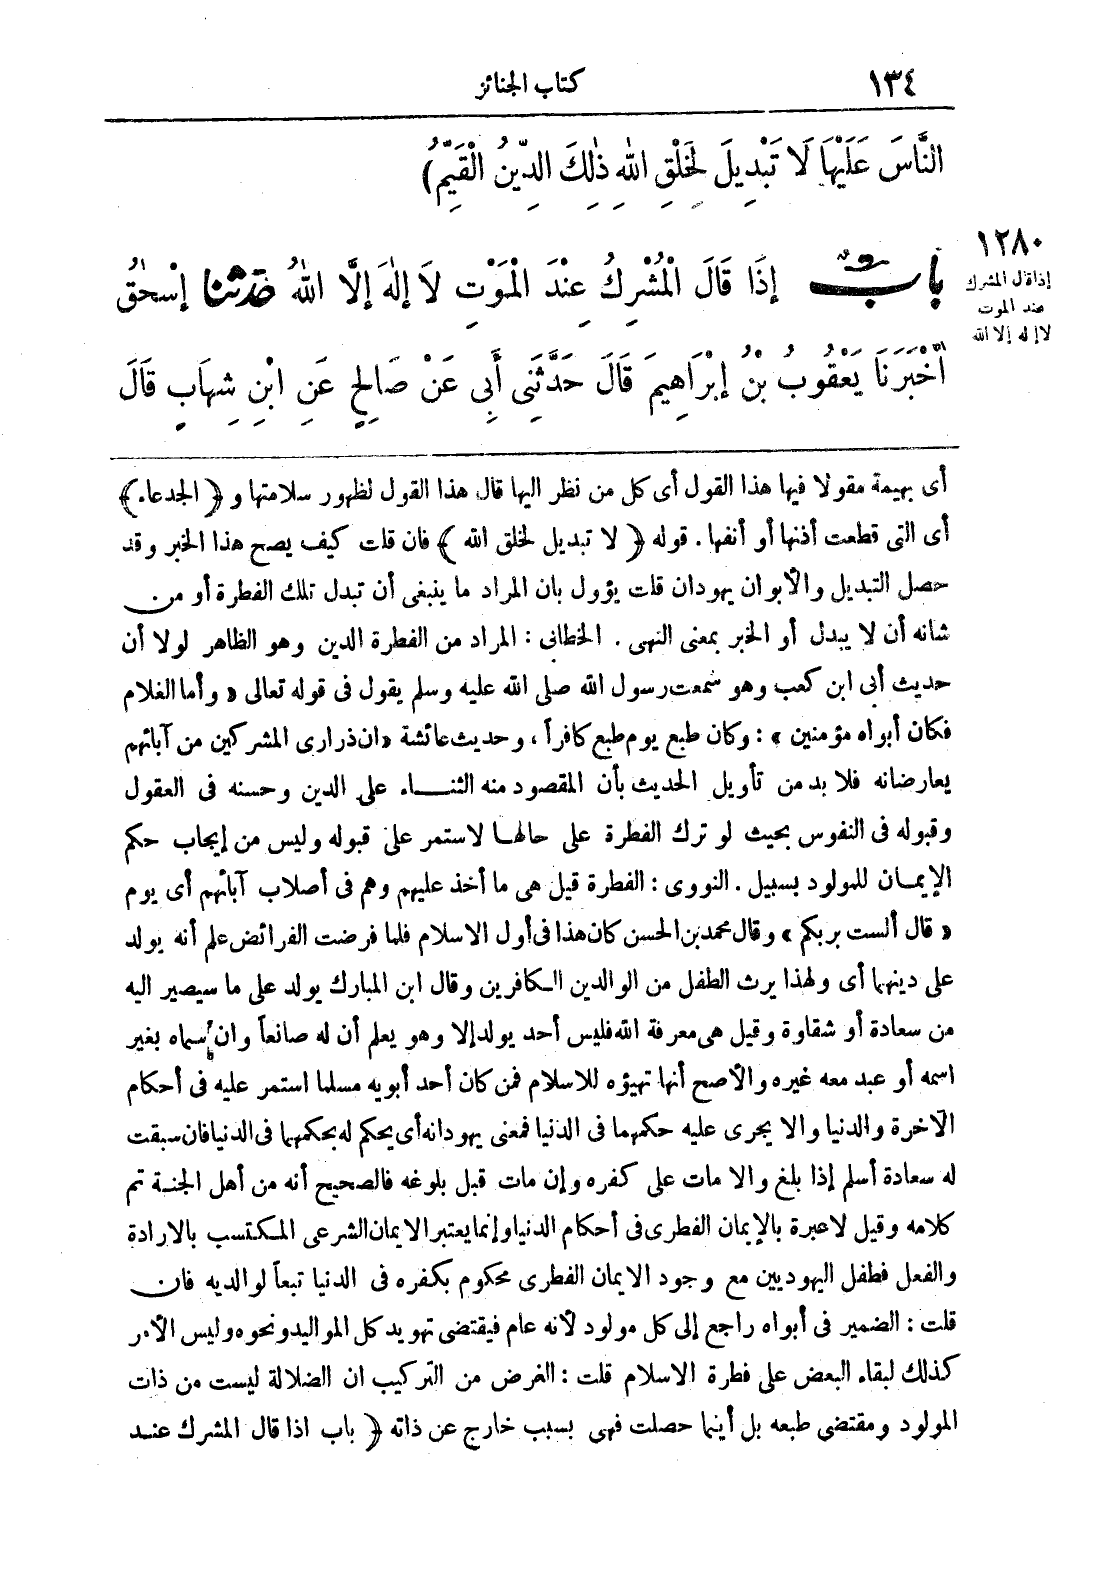 ١٣٤ كتاب الجنائز
النَّاسَ عَلَيْهَا لَا تَبْدِيلَ لِخَلْقِ اللهِ ذٰلِكَ الدِّينُ الْقَيِّمُ)
١٢٨٠
إذا قال المشرك
عند الموت
لا إله إلا الله
بابٌ إِذَا قَالَ الْمُشْرِكُ عِنْدَ الْمَوْتِ لَا إِلٰهَ إِلَّا اللهُ حَدَّثَنَا إِسْحٰقُ
أَخْبَرَنَا يَعْقُوبُ بْنُ إِبْرَاهِيمَ قَالَ حَدَّثَنِى أَبِى عَنْ صَالِحٍ عَنِ ابْنِ شِهَابٍ قَالَ
أى بهيمة مقولا فيها هذا القول أى كل من نظر اليها قال هذا القول لظهور سلامتها و ﴿ الجدعاء ﴾
أى التى قطعت أذنها أو أنفها . قوله ﴿ لا تبديل لخلق الله ﴾ فان قلت كيف يصح هذا الخبر وقد
حصل التبديل والأبوان يهودان قلت يؤول بان المراد ما ينبغى أن تبدل تلك الفطرة أو من
شانه أن لا يبدل أو الخبر بمعنى النهى . الخطابى : المراد من الفطرة الدين وهو الظاهر لولا أن
حديث أبى ابن كعب وهو سمعت رسول الله صلى الله عليه وسلم يقول فى قوله تعالى « وأما الغلام
فكان أبواه مؤمنين » : وكان طبع يوم طبع كافراً ، وحديث عائشة «ان ذرارى المشركين من آبائهم
يعارضانه فلا بد من تأويل الحديث بأن المقصود منه الثناء على الدين وحسنه فى العقول
وقبوله فى النفوس بحيث لو ترك الفطرة على حالها لاستمر على قبوله وليس من إيجاب حكم
الإيمان للمولود بسبيل . النووى : الفطرة قيل هى ما أخذ عليهم وهم فى أصلاب آبائهم أى يوم
« قال ألست بربكم » وقال محمد بن الحسن كان هذا فى أول الاسلام فلما فرضت الفرائض علم أنه يولد
على دينهما أى ولهذا يرث الطفل من الوالدين الكافرين وقال ابن المبارك يولد على ما سيصير اليه
من سعادة أو شقاوة وقيل هى معرفة الله فليس أحد يولد إلا وهو يعلم أن له صانعاً وان أسماه بغير
اسمه أو عبد معه غيره والأصح أنها تهيؤه للاسلام فمن كان أحد أبويه مسلما استمر عليه فى أحكام
الآخرة والدنيا والا يجرى عليه حكمهما فى الدنيا فمعنى يهودانه أى يحكم له بحكمهما فى الدنيا فان سبقت
له سعادة أسلم إذا بلغ والا مات على كفره وإن مات قبل بلوغه فالصحيح أنه من أهل الجنة تم
كلامه وقيل لا عبرة بالإيمان الفطرى فى أحكام الدنيا وإنما يعتبر الايمان الشرعى المكتسب بالارادة
والفعل فطفل اليهوديين مع وجود الايمان الفطرى محكوم بكفره فى الدنيا تبعاً لوالديه فان
قلت : الضمير فى أبواه راجع إلى كل مولود لأنه عام فيقتضى تهويد كل المواليد ونحوه وليس الأمر
كذلك لبقاء البعض على فطرة الاسلام قلت : الغرض من التركيب ان الضلالة ليست من ذات
المولود ومقتضى طبعه بل أينما حصلت فهى بسبب خارج عن ذاته ﴿ باب اذا قال المشرك عند